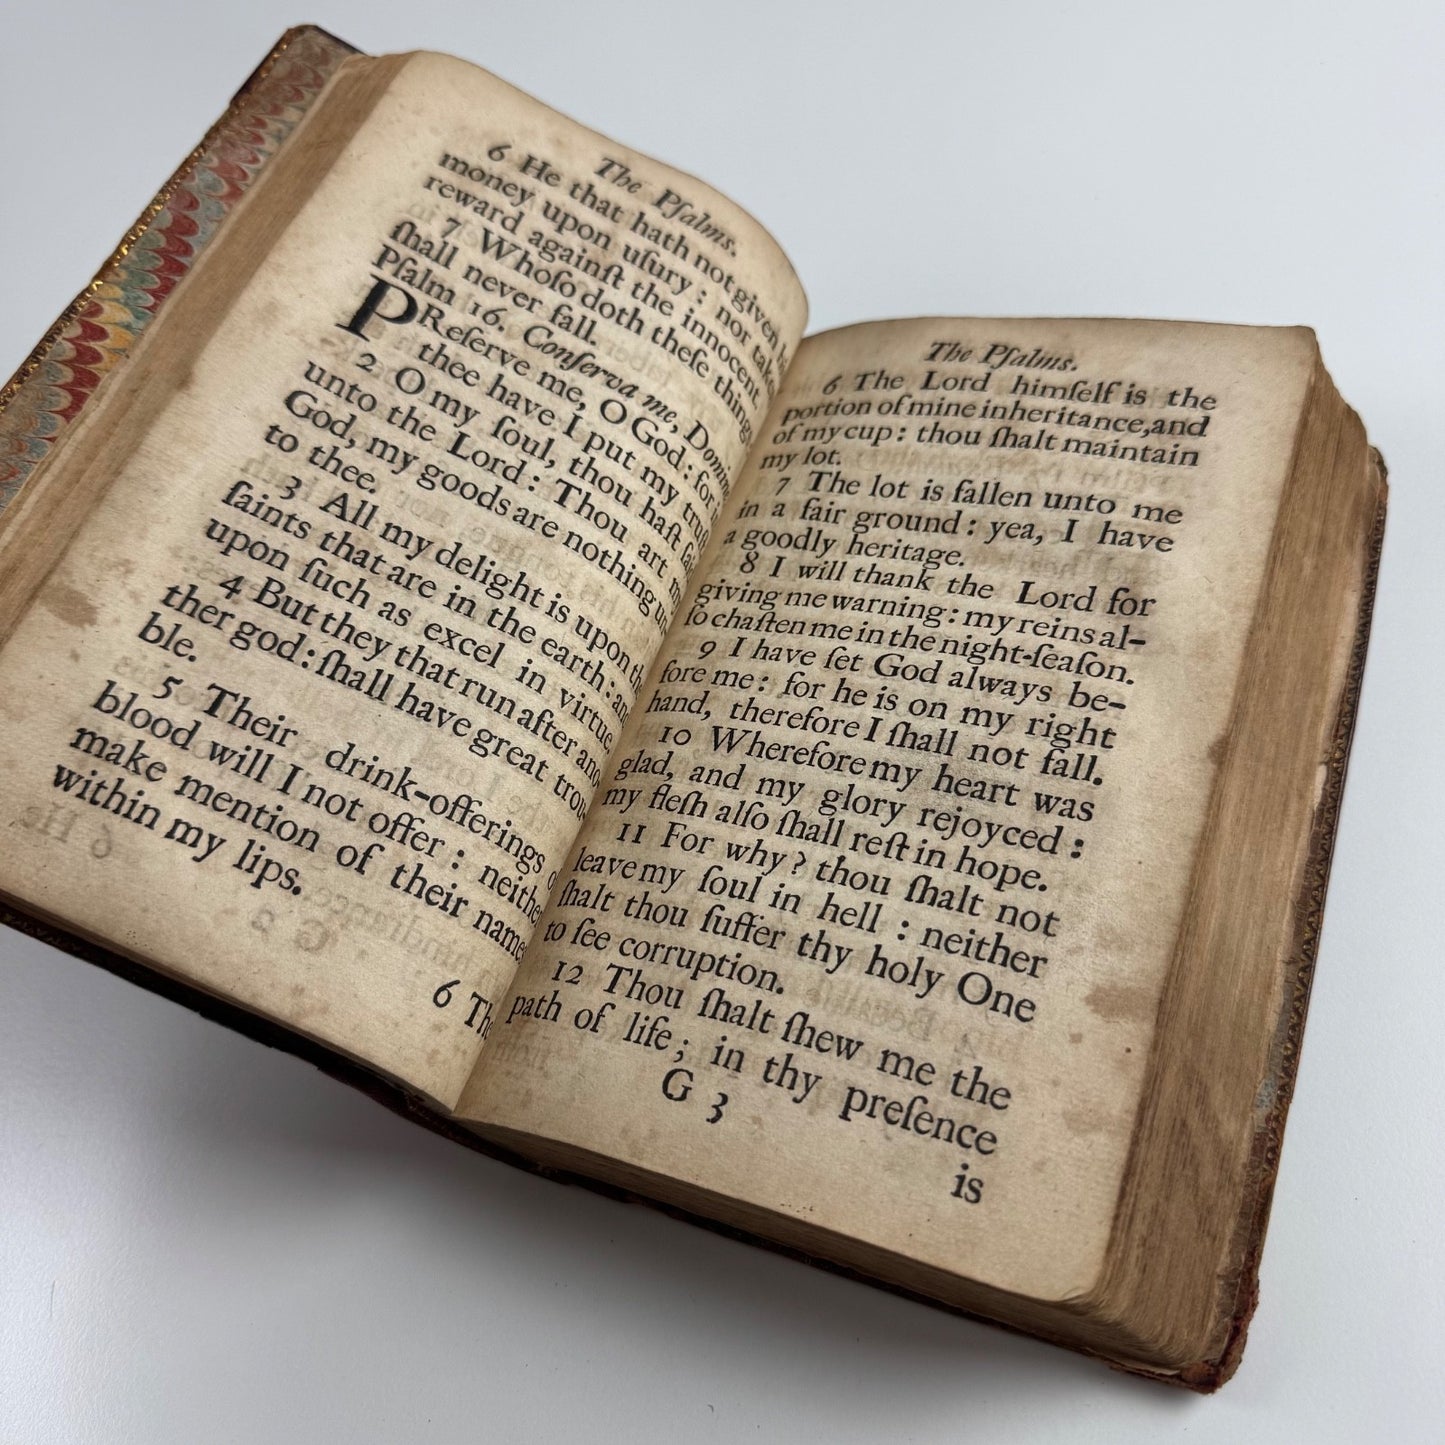 The Pſalms.
6 He that hath not given his
money upon uſury : nor taken
reward againſt the innocent.
7 Whoſo doth theſe things
ſhall never fall.
Pſalm 16. Conſerva me, Domine.
PReſerve me, O God : for in
thee have I put my truſt.
2 O my ſoul, thou haſt ſaid
unto the Lord : Thou art my
God, my goods are nothing unto
to thee.
3 All my delight is upon the
ſaints that are in the earth : and
upon ſuch as excel in virtue.
4 But they that run after ano-
ther god : ſhall have great trou-
ble.
5 Their drink-offerings
blood will I not offer : neither
make mention of their names
within my lips.
6 The
The Pſalms.
6 The Lord himſelf is the
portion of mine inheritance, and
of my cup : thou ſhalt maintain
my lot.
7 The lot is fallen unto me
in a fair ground : yea, I have
a goodly heritage.
8 I will thank the Lord for
giving me warning : my reins al-
ſo chaſten me in the night-ſeaſon.
9 I have ſet God always be-
fore me : for he is on my right
hand, therefore I ſhall not fall.
10 Wherefore my heart was
glad, and my glory rejoyced :
my fleſh alſo ſhall reſt in hope.
11 For why? thou ſhalt not
leave my ſoul in hell : neither
ſhalt thou ſuffer thy holy One
to ſee corruption.
12 Thou ſhalt ſhew me the
path of life; in thy preſence
G 3
is